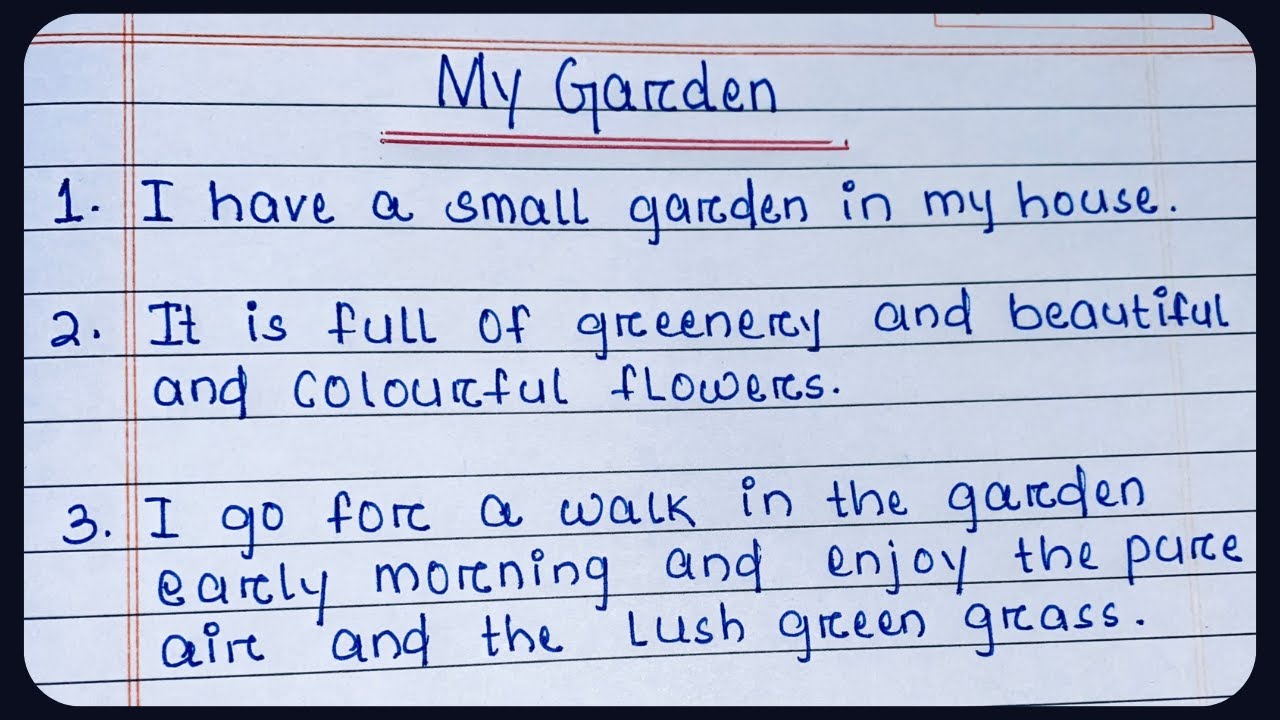 My Garden
1. I have a small garden in my house.
2. It is full of greenery and beautiful
and colourful flowers.
3. I go for a walk in the garden
early morning and enjoy the pure
air and the lush green grass.